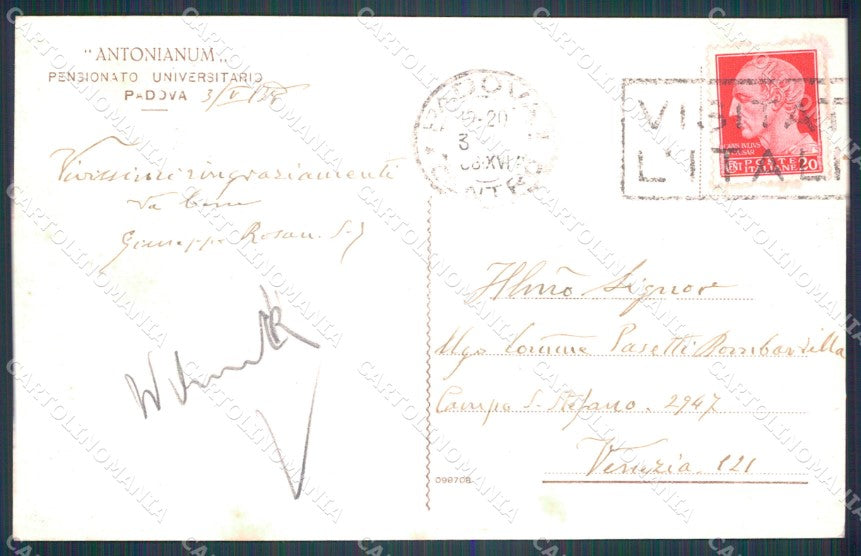 "ANTONIANUM"
PENSIONATO UNIVERSITARIO
PADOVA 3/V/38
Vivissimi ringraziamenti
Giuseppe Rosan. S.J
PADOVA
3
XVI
VISITAT
L'ITALI
CENT POSTE ITALIANE 20
Illmo Signor
Ugo Comm Pasetti Bombardella
Campo S. Stefano. 2947
Venezia. 121
098708
CARTOLINOMANIA